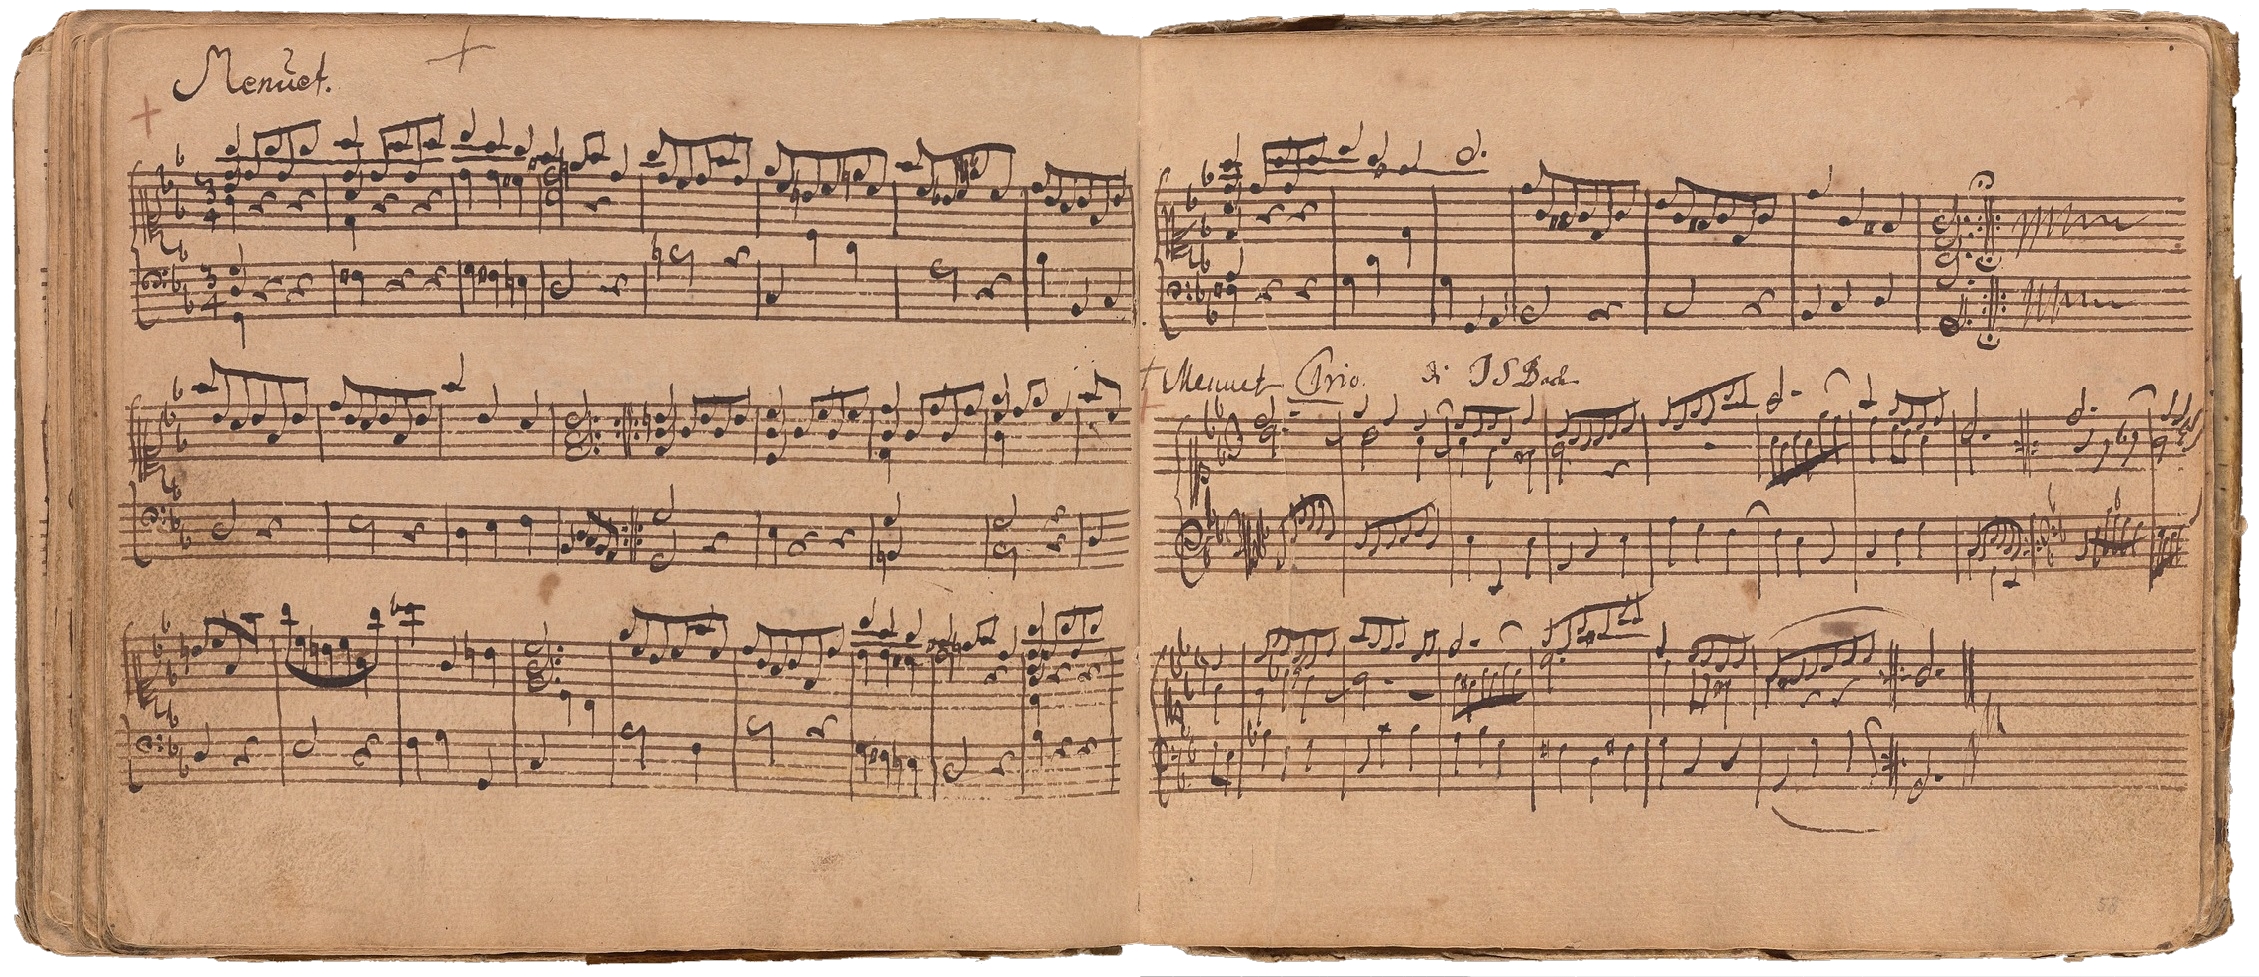 Menuet.
3
4
3
4
Menuet Trio. di J S Bach
58